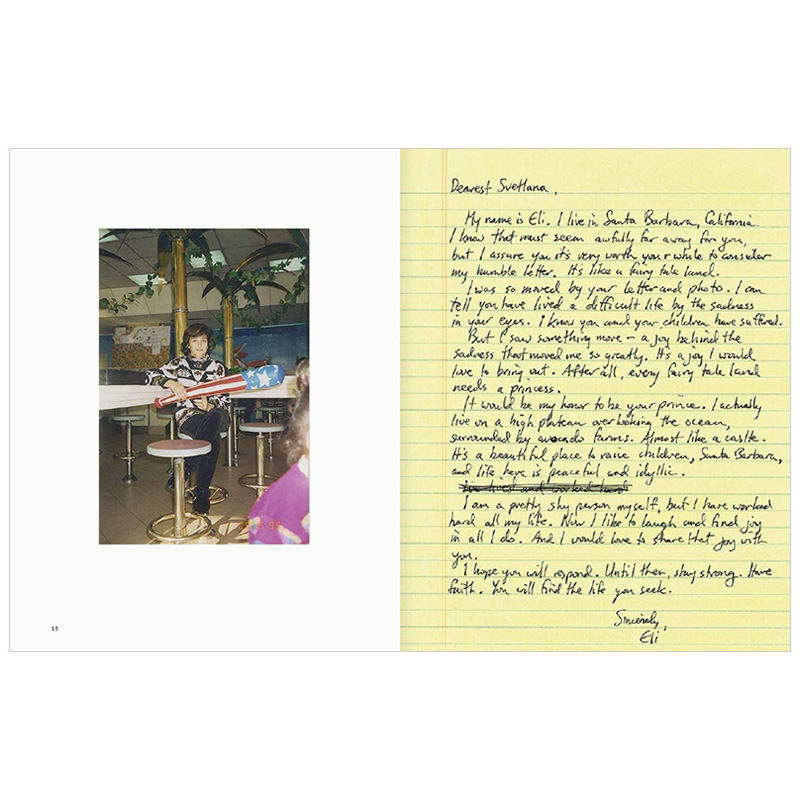 Dearest Svetlana,
My name is Eli. I live in Santa Barbara, California.
I know that must seem awfully far away for you,
but I assure you it's very worth your while to consider
my humble letter. It's like a fairy tale land.
I was so moved by your letter and photo. I can
tell you have lived a difficult life by the sadness
in your eyes. I know you and your children have suffered.
But I saw something more – a joy behind the
sadness that moved me so greatly. It's a joy I would
love to bring out. After all, every fairy tale land
needs a princess.
It would be my honor to be your prince. I actually
live on a high plateau overlooking the ocean,
surrounded by avocado farms. Almost like a castle.
It's a beautiful place to raise children, Santa Barbara,
and life here is peaceful and idyllic.
I've lived and worked hard
I am a pretty shy person myself, but I have worked
hard all my life. Now I like to laugh and find joy
in all I do. And I would love to share that joy with
you.
I hope you will respond. Until then, stay strong. Have
faith. You will find the life you seek.
Sincerely,
Eli
15